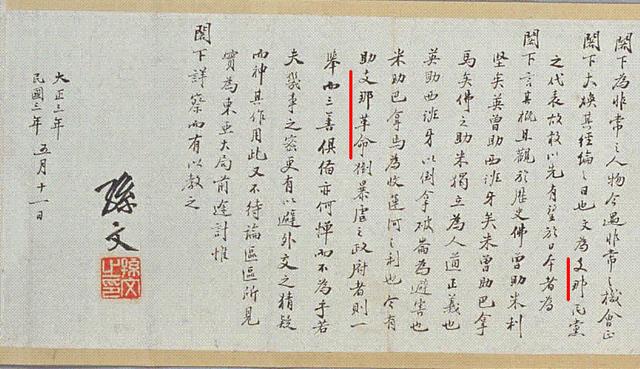 閣下為非常之人物今遇非常之機會正
閣下大煥其經綸之日也文為支那民黨
之代表故敢以先有望於日本者為
閣下言其概且觀於歷史佛曾助米利
堅矣英曾助西班牙矣米曾助巴拿
馬矣佛之助米獨立為人道正義也
英助西班牙以倒拿破崙為避害也
米助巴拿馬為收運河之利也今有
助支那革命倒暴虐之政府者則一
舉而三善俱備亦何憚而不為乎若
夫幾事之密更有以避外交之猜疑
而神其作用此又不待論區區所見
實為東亞大局前途計惟
閣下詳察而有以教之
大正三年
民國三年 五月十一日
孫文
孫文之印